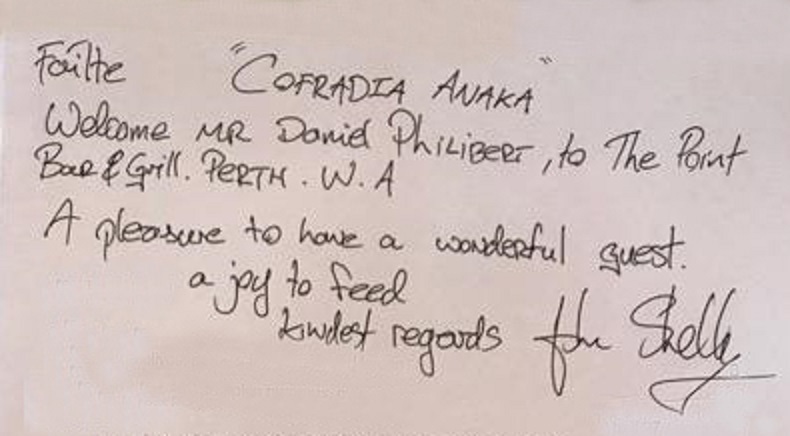 Failte "COFRADIA ANAKA"
Welcome MR Daniel PHILIBERT, to The Point
Bar & Grill. PERTH. W.A
A pleasure to have a wonderful guest.
a joy to feed
kindest regards John Shelly